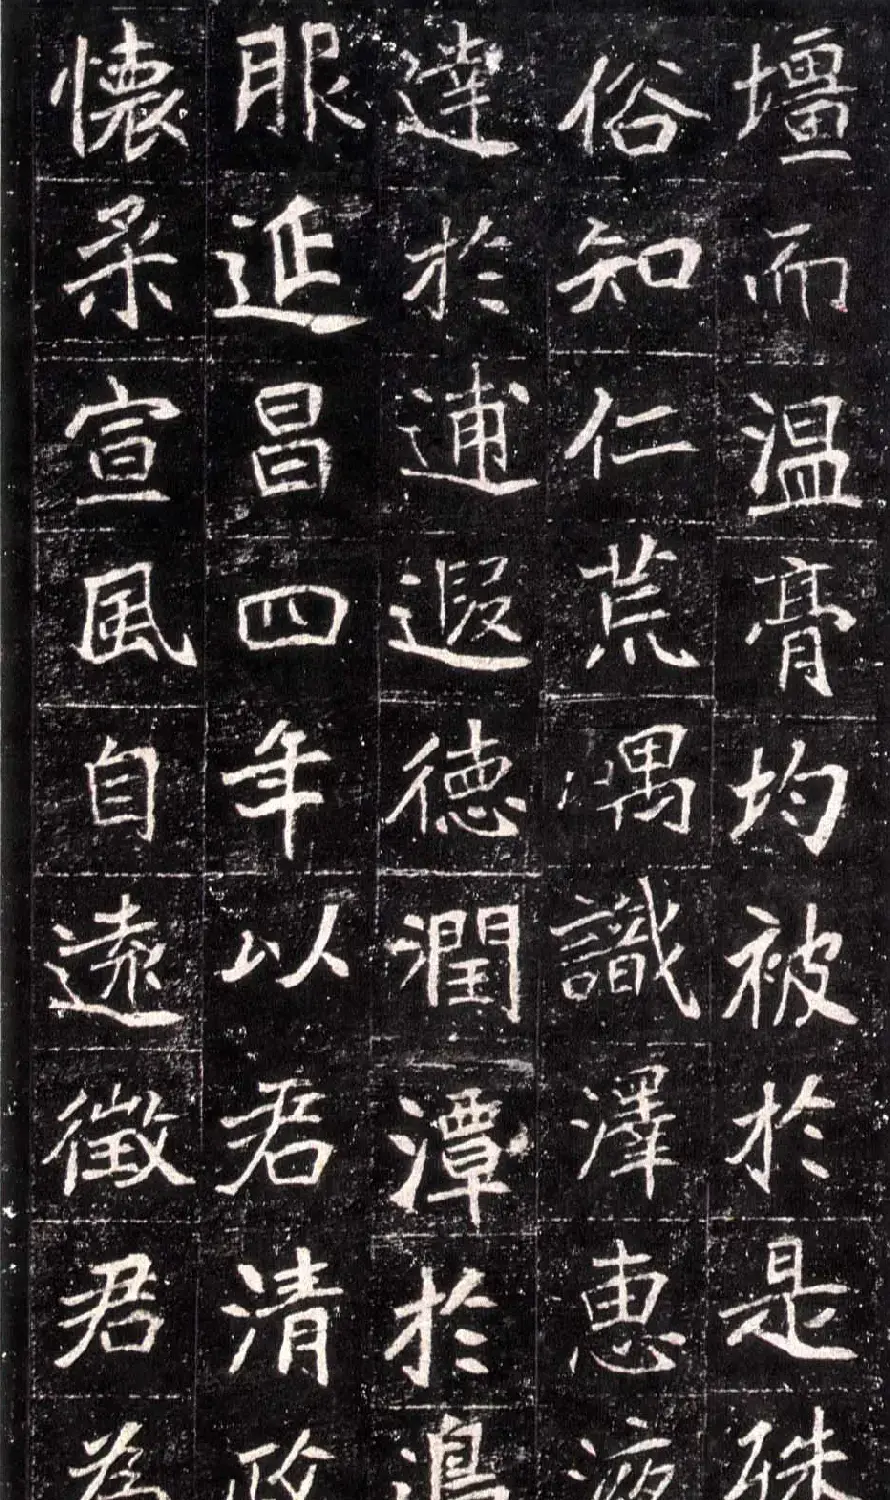 壃而溫膏均被於是殊
俗知仁荒嵎識澤惠液
達於逋遐德潤潭於
服延昌四年以君清政
懷柔宣風自遠徵君為